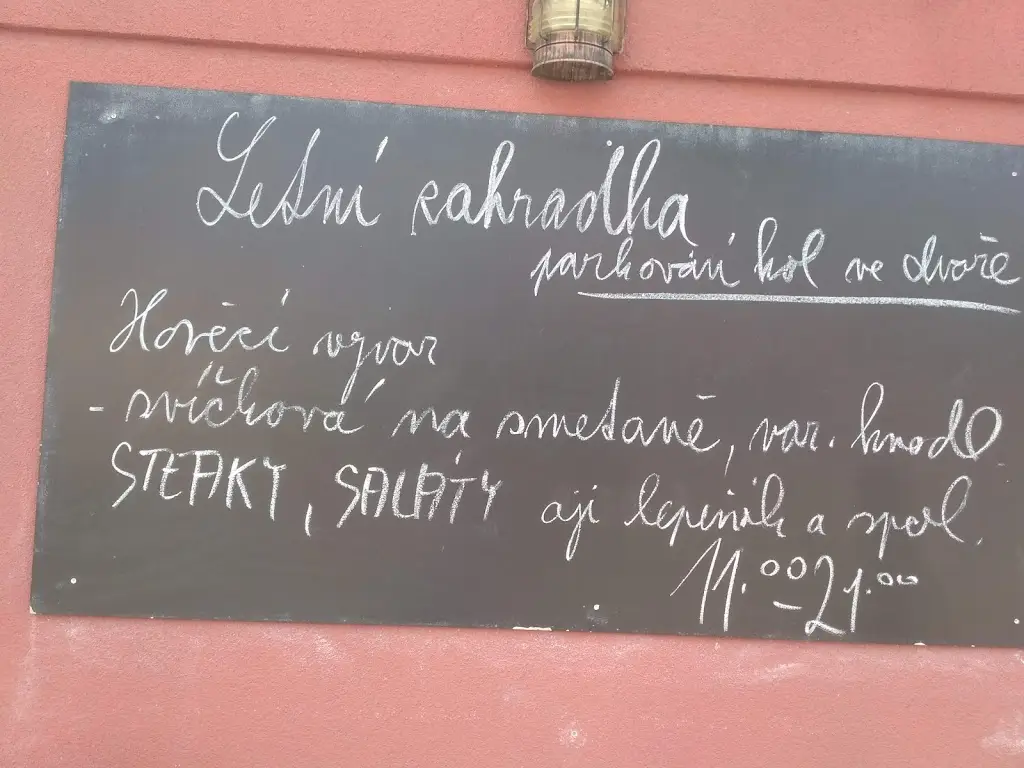 Letní zahrádka
parkování kol ve dvoře
Hovězí vývar
- svíčková na smetaně, var. knedl
STEAKY, SALÁTY aji lepeník a spol.
11.00-21.00